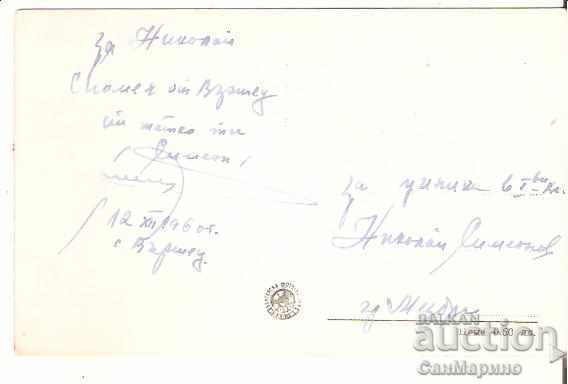 За Николай
Спомен от Вършец
от татко ти
/Симеон/
12 XII 1960г.
с. Вършец.
За ученика в I ви кл.
Николай Симеонов
гр.
Цена 0.60 лв.
BALKAN
auction
СанМарино